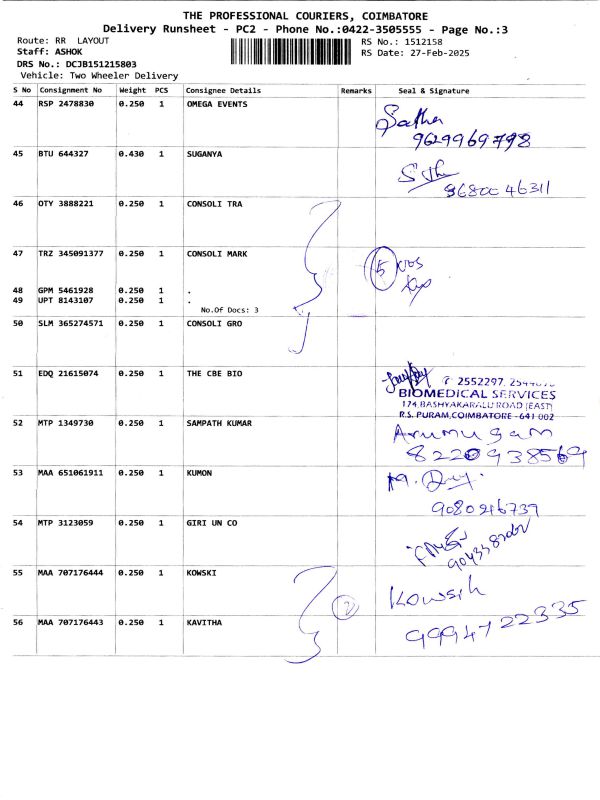 THE PROFESSIONAL COURIERS, COIMBATORE
Delivery Runsheet - PC2 - Phone No.:0422-3505555 - Page No.:3
Route: RR LAYOUT
RS No.: 1512158
Staff: ASHOK
RS Date: 27-Feb-2025
DRS No.: DCJB151215803
Vehicle: Two Wheeler Delivery
S No Consignment No Weight PCS Consignee Details Remarks Seal & Signature
44 RSP 2478830 0.250 1 OMEGA EVENTS
9629969798
45 BTU 644327 0.430 1 SUGANYA
46 OTY 3888221 0.250 1 CONSOLI TRA
47 TRZ 345091377 0.250 1 CONSOLI MARK
5
48 GPM 5461928 0.250 1 .
49 UPT 8143107 0.250 1 .
No.Of Docs: 3
50 SLM 365274571 0.250 1 CONSOLI GRO
51 EDQ 21615074 0.250 1 THE CBE BIO
✆ 2552297,
BIOMEDICAL SERVICES
174, BASHYAKARALU ROAD (EAST)
R.S. PURAM, COIMBATORE - 641 002
52 MTP 1349730 0.250 1 SAMPATH KUMAR
Arumugam
8220938569
53 MAA 651061911 0.250 1 KUMON
54 MTP 3123059 0.250 1 GIRI UN CO
55 MAA 707176444 0.250 1 KOWSKI
Kowsik
2
56 MAA 707176443 0.250 1 KAVITHA
9994722335